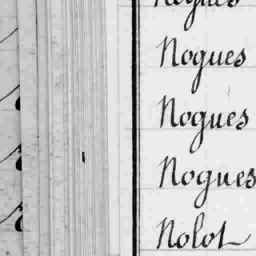 Nogues
Nogues
Nogues
Nogues
Nolot